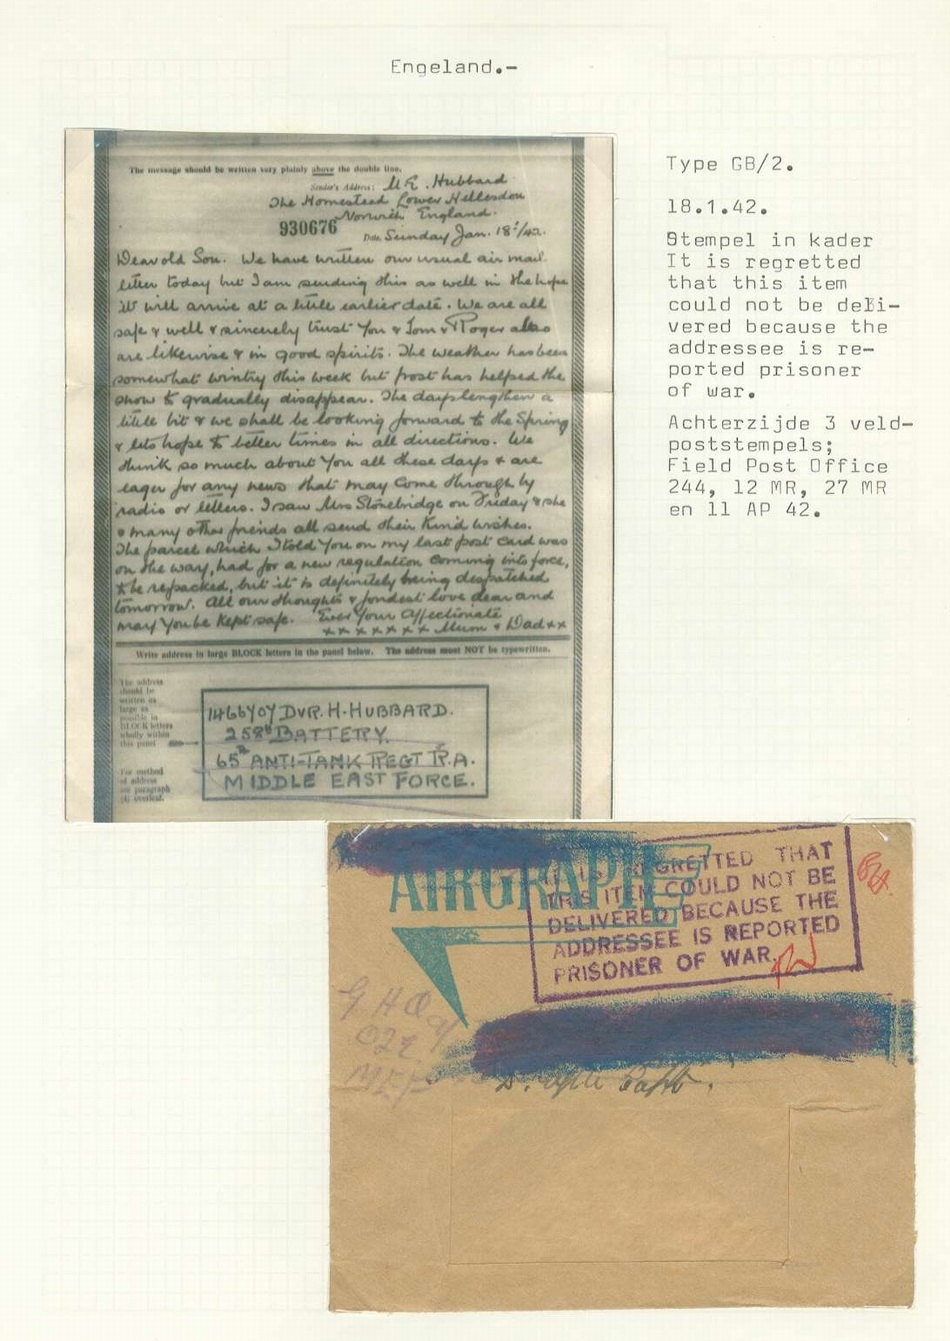 Engeland.-
The message should be written very plainly above the double line.
Sender's Address: M E. Hubbard
The Homestead Lower Hellesdon
Norwich England.
930676
Date Sunday Jan. 18th/42.
Dear old Son. We have written our usual air mail
letter today but I am sending this as well in the hope
it will arrive at a little earlier date. We are all
safe & well & sincerely trust You & Tom & Roger also
are likewise & in good spirits. The weather has been
somewhat wintry this week but frost has helped the
snow to gradually disappear. The days lengthen a
little bit & we shall be looking forward to the Spring
& lets hope to better times in all directions. We
think so much about You all these days & are
eager for any news that may come through by
radio or letters. I saw Mrs Stonebridge on Friday & she
& many other friends all send their Kind wishes.
The parcel which I told You on my last post card was
on the way, had for a new regulation coming into force,
to be repacked, but it is definitely being despatched
tomorrow. All our thoughts & fondest love dear and
may You be Kept safe. Ever Your Affectionate
x x x x x x x Mum & Dad x x
Write address in large BLOCK letters in the panel below. The address must NOT be typewritten.
The address
should be
written as
large as
possible in
BLOCK letters
wholly within
this panel
For method
of address
see paragraph
(4) overleaf.
DVR. H. HUBBARD.
258th BATTERY.
65th ANTI-TANK REGT R.A.
MIDDLE EAST FORCE.
Type GB/2.
18.1.42.
Stempel in kader
It is regretted
that this item
could not be deli-
vered because the
addressee is re-
ported prisoner
of war.
Achterzijde 3 veld-
poststempels;
Field Post Office
244, 12 MR, 27 MR
en 11 AP 42.
AIRGRAPH
IT IS REGRETTED THAT
THIS ITEM COULD NOT BE
DELIVERED BECAUSE THE
ADDRESSEE IS REPORTED
PRISONER OF WAR.
G H Q
02E
MEF